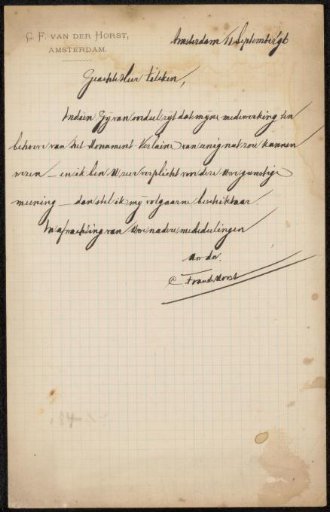 C. F. VAN DER HORST,
AMSTERDAM.
Amsterdam 11 September '96
Geachte Heer
Indien Gy van oordeel zyt dat myne medewerking ten
behoeve van het Monument Verlaine van eenig nut zou kunnen
wezen – en ik ben U zeer verplicht voor deze Uwe gunstige
meening – dan stel ik my volgaarne beschikbaar
In afwachting van Uwe nadere mededeelingen
C F van d Horst